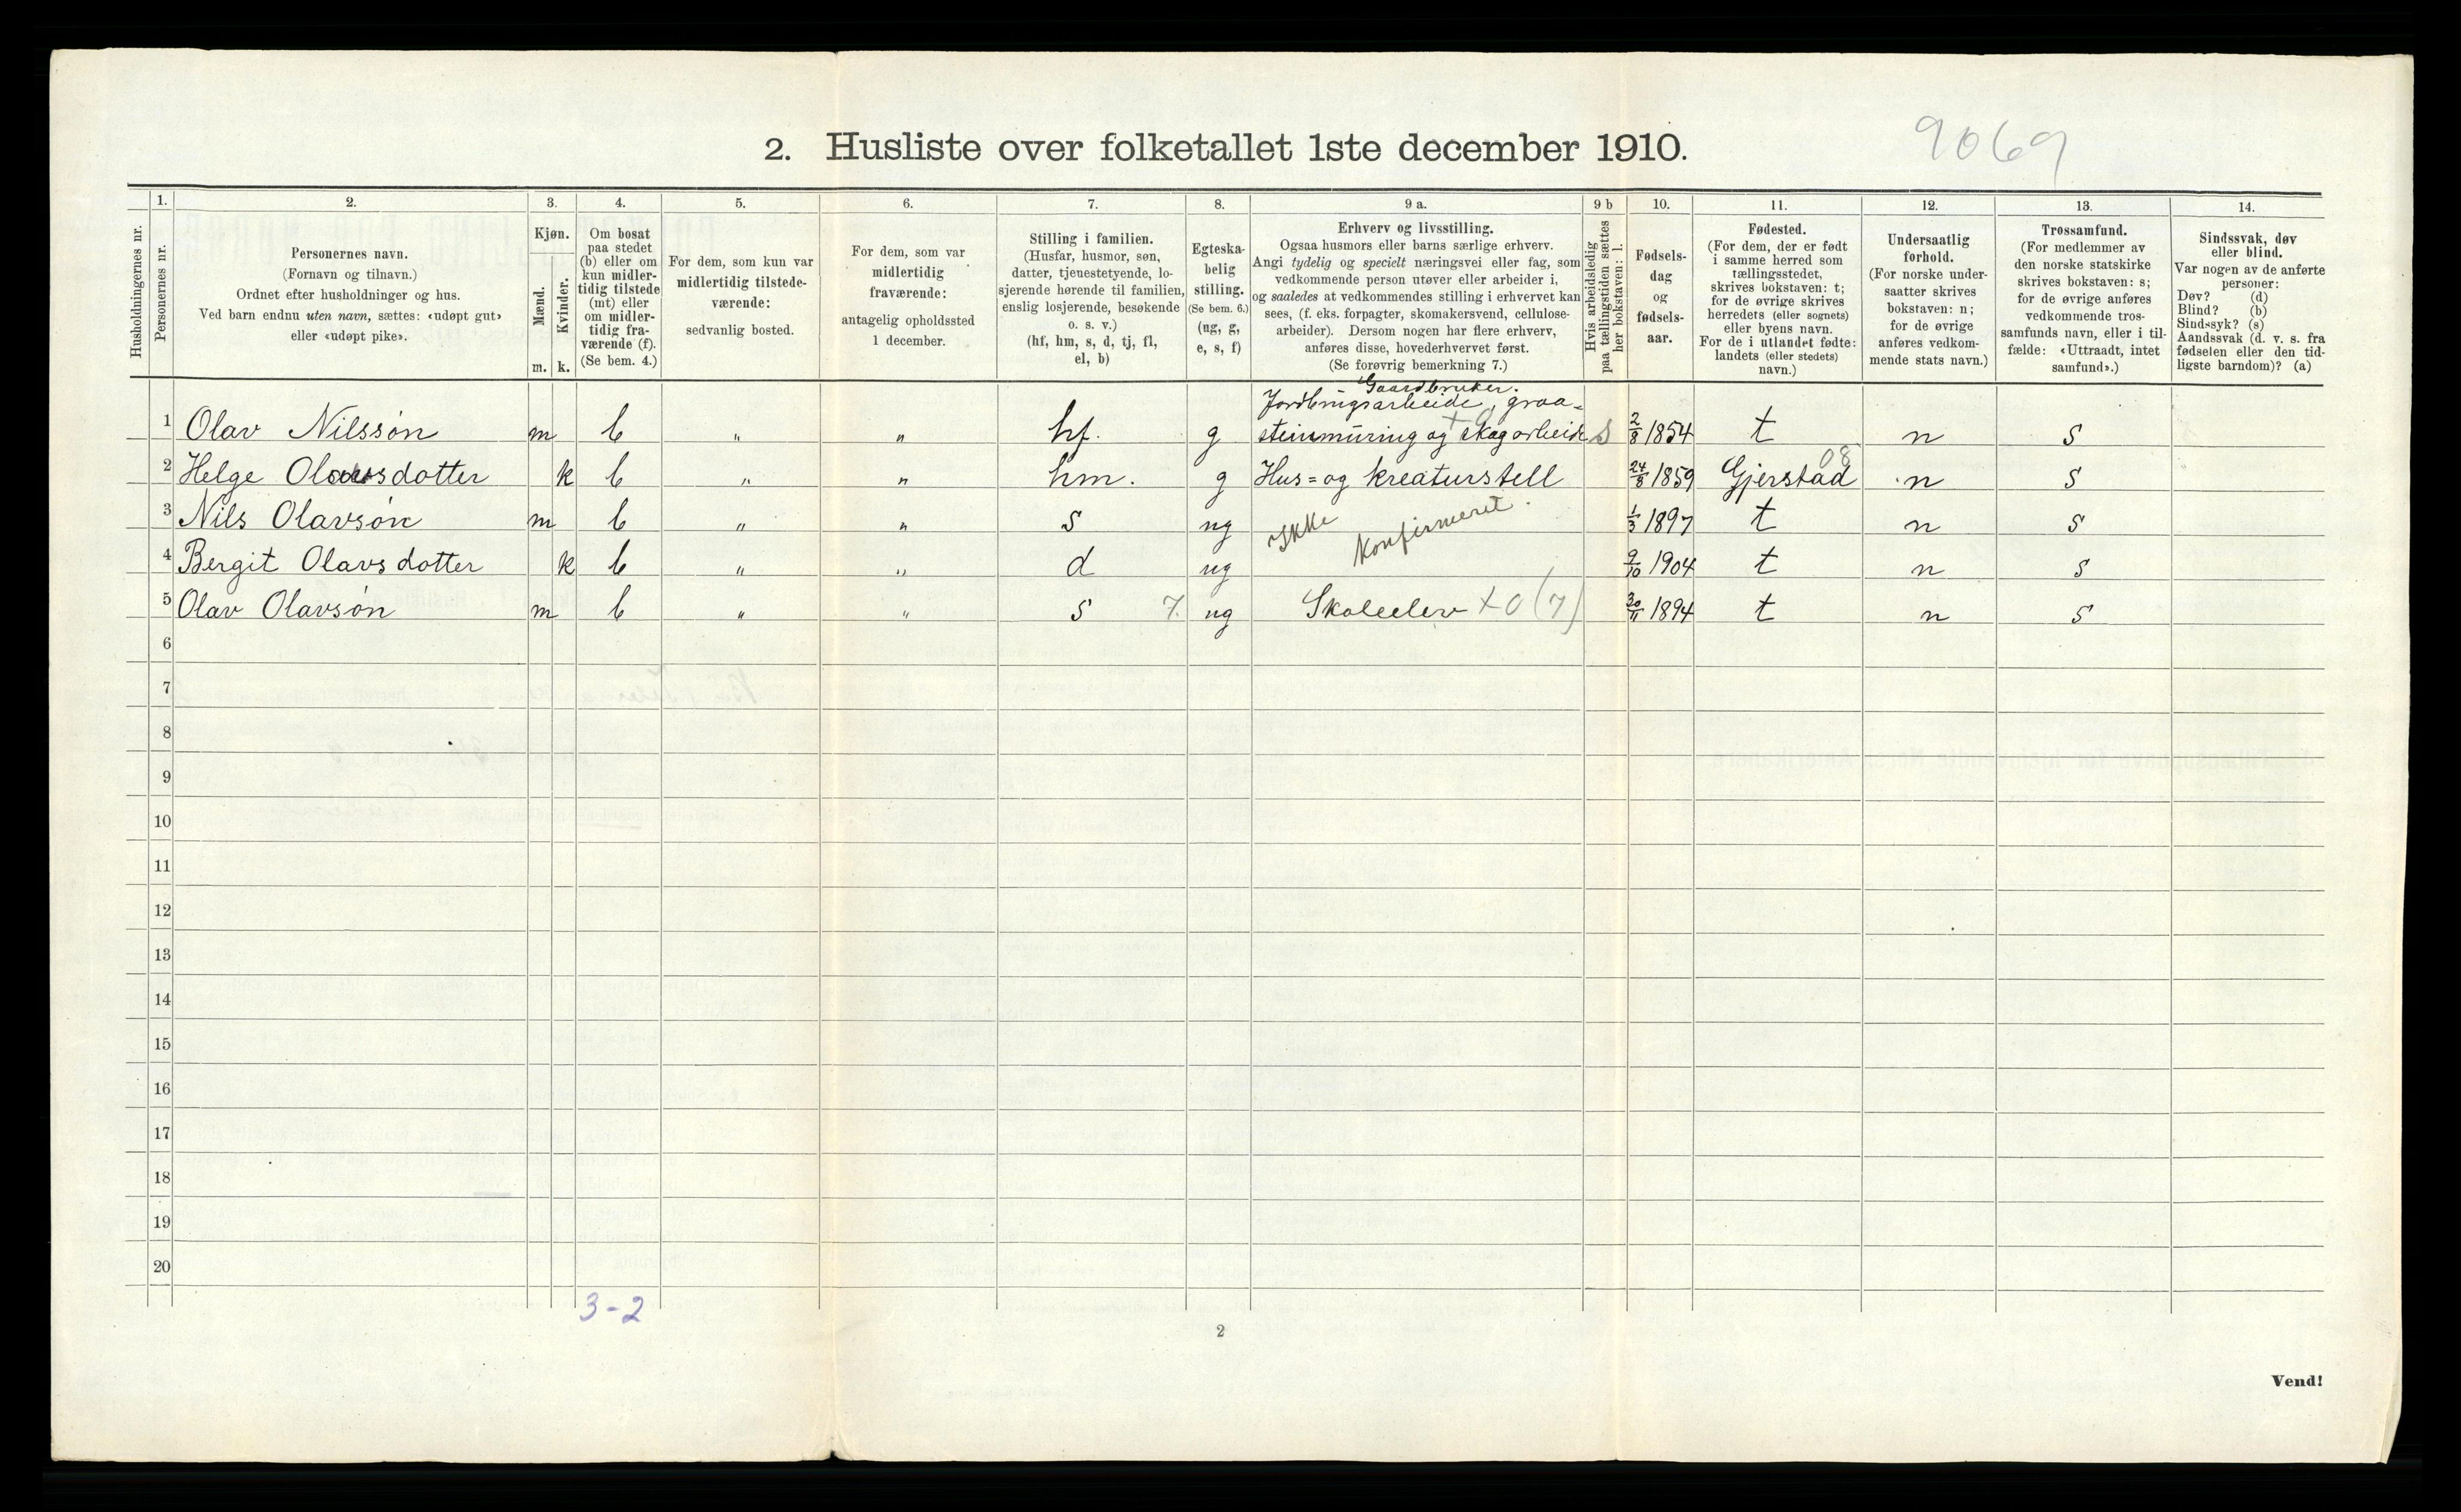 9069
2. Husliste over folketallet 1ste december 1910.
1. 2. 3. 4. 5. 6. 7. 8. 9 a. 9 b 10. 11. 12. 13. 14.
Husholdningernes nr.
Personernes nr.
Personernes navn.
(Fornavn og tilnavn.)
Ordnet efter husholdninger og hus.
Ved barn endnu uten navn, sættes: «udøpt gut»
eller «udøpt pike».
Kjøn.
Mænd.
Kvinder.
m. k.
Om bosat
paa stedet
(b) eller om
kun midler-
tidig tilstede
(mt) eller
om midler-
tidig fra-
værende (f).
(Se bem. 4.)
For dem, som kun var
midlertidig tilstede-
værende:
sedvanlig bosted.
For dem, som var
midlertidig
fraværende:
antagelig opholdssted
1 december.
Stilling i familien.
(Husfar, husmor, søn,
datter, tjenestetyende, lo-
sjerende hørende til familien,
enslig losjerende, besøkende
o. s. v.)
(hf, hm, s, d, tj, fl,
el, b)
Egteska-
belig
stilling.
(Se bem. 6.)
(ug, g,
e, s, f)
Erhverv og livsstilling.
Ogsaa husmors eller barns særlige erhverv.
Angi tydelig og specielt næringsvei eller fag, som
vedkommende person utøver eller arbeider i,
og saaledes at vedkommendes stilling i erhvervet kan
sees, (f. eks. forpagter, skomakersvend, cellulose-
arbeider). Dersom nogen har flere erhverv,
anføres disse, hovederhvervet først.
(Se forøvrig bemerkning 7.)
Hvis arbeidsledig
paa tællingstiden sættes
her bokstaven: l.
Fødsels-
dag
og
fødsels-
aar.
Fødested.
(For dem, der er født
i samme herred som
tællingsstedet,
skrives bokstaven: t;
for de øvrige skrives
herredets (eller sognets)
eller byens navn.
For de i utlandet fødte:
landets (eller stedets)
navn.)
Undersaatlig
forhold.
(For norske under-
saatter skrives
bokstaven: n;
for de øvrige
anføres vedkom-
mende stats navn.)
Trossamfund.
(For medlemmer av
den norske statskirke
skrives bokstaven: s;
for de øvrige anføres
vedkommende tros-
samfunds navn, eller i til-
fælde: «Uttraadt, intet
samfund».)
Sindssvak, døv
eller blind.
Var nogen av de anførte
personer:
Døv? (d)
Blind? (b)
Sindssyk? (s)
Aandssvak (d. v. s. fra
fødselen eller den tid-
ligste barndom)? (a)
Gaardbruker.
Jordbrugsarbeide, graa-
1 Olav Nilssøn m b " " hf. g steinmuring og skogarbeide s 2/8 1854 t n s
08
2 Helge Olavsdotter k b " " hm. g Hus= og kreaturstell 24/8 1859 Gjerstad n s
3 Nils Olavsøn m b " " s ug Ikke konfirmeret. 1/3 1897 t n s
4 Bergit Olavsdotter k b " " d ug 9/10 1904 t n s
5 Olav Olavsøn m b " " s 7. ug Skoleelev +0 (7) 30/11 1894 t n s
6
7
8
9
10
11
12
13
14
15
16
17
18
19
20
3-2
2
Vend!